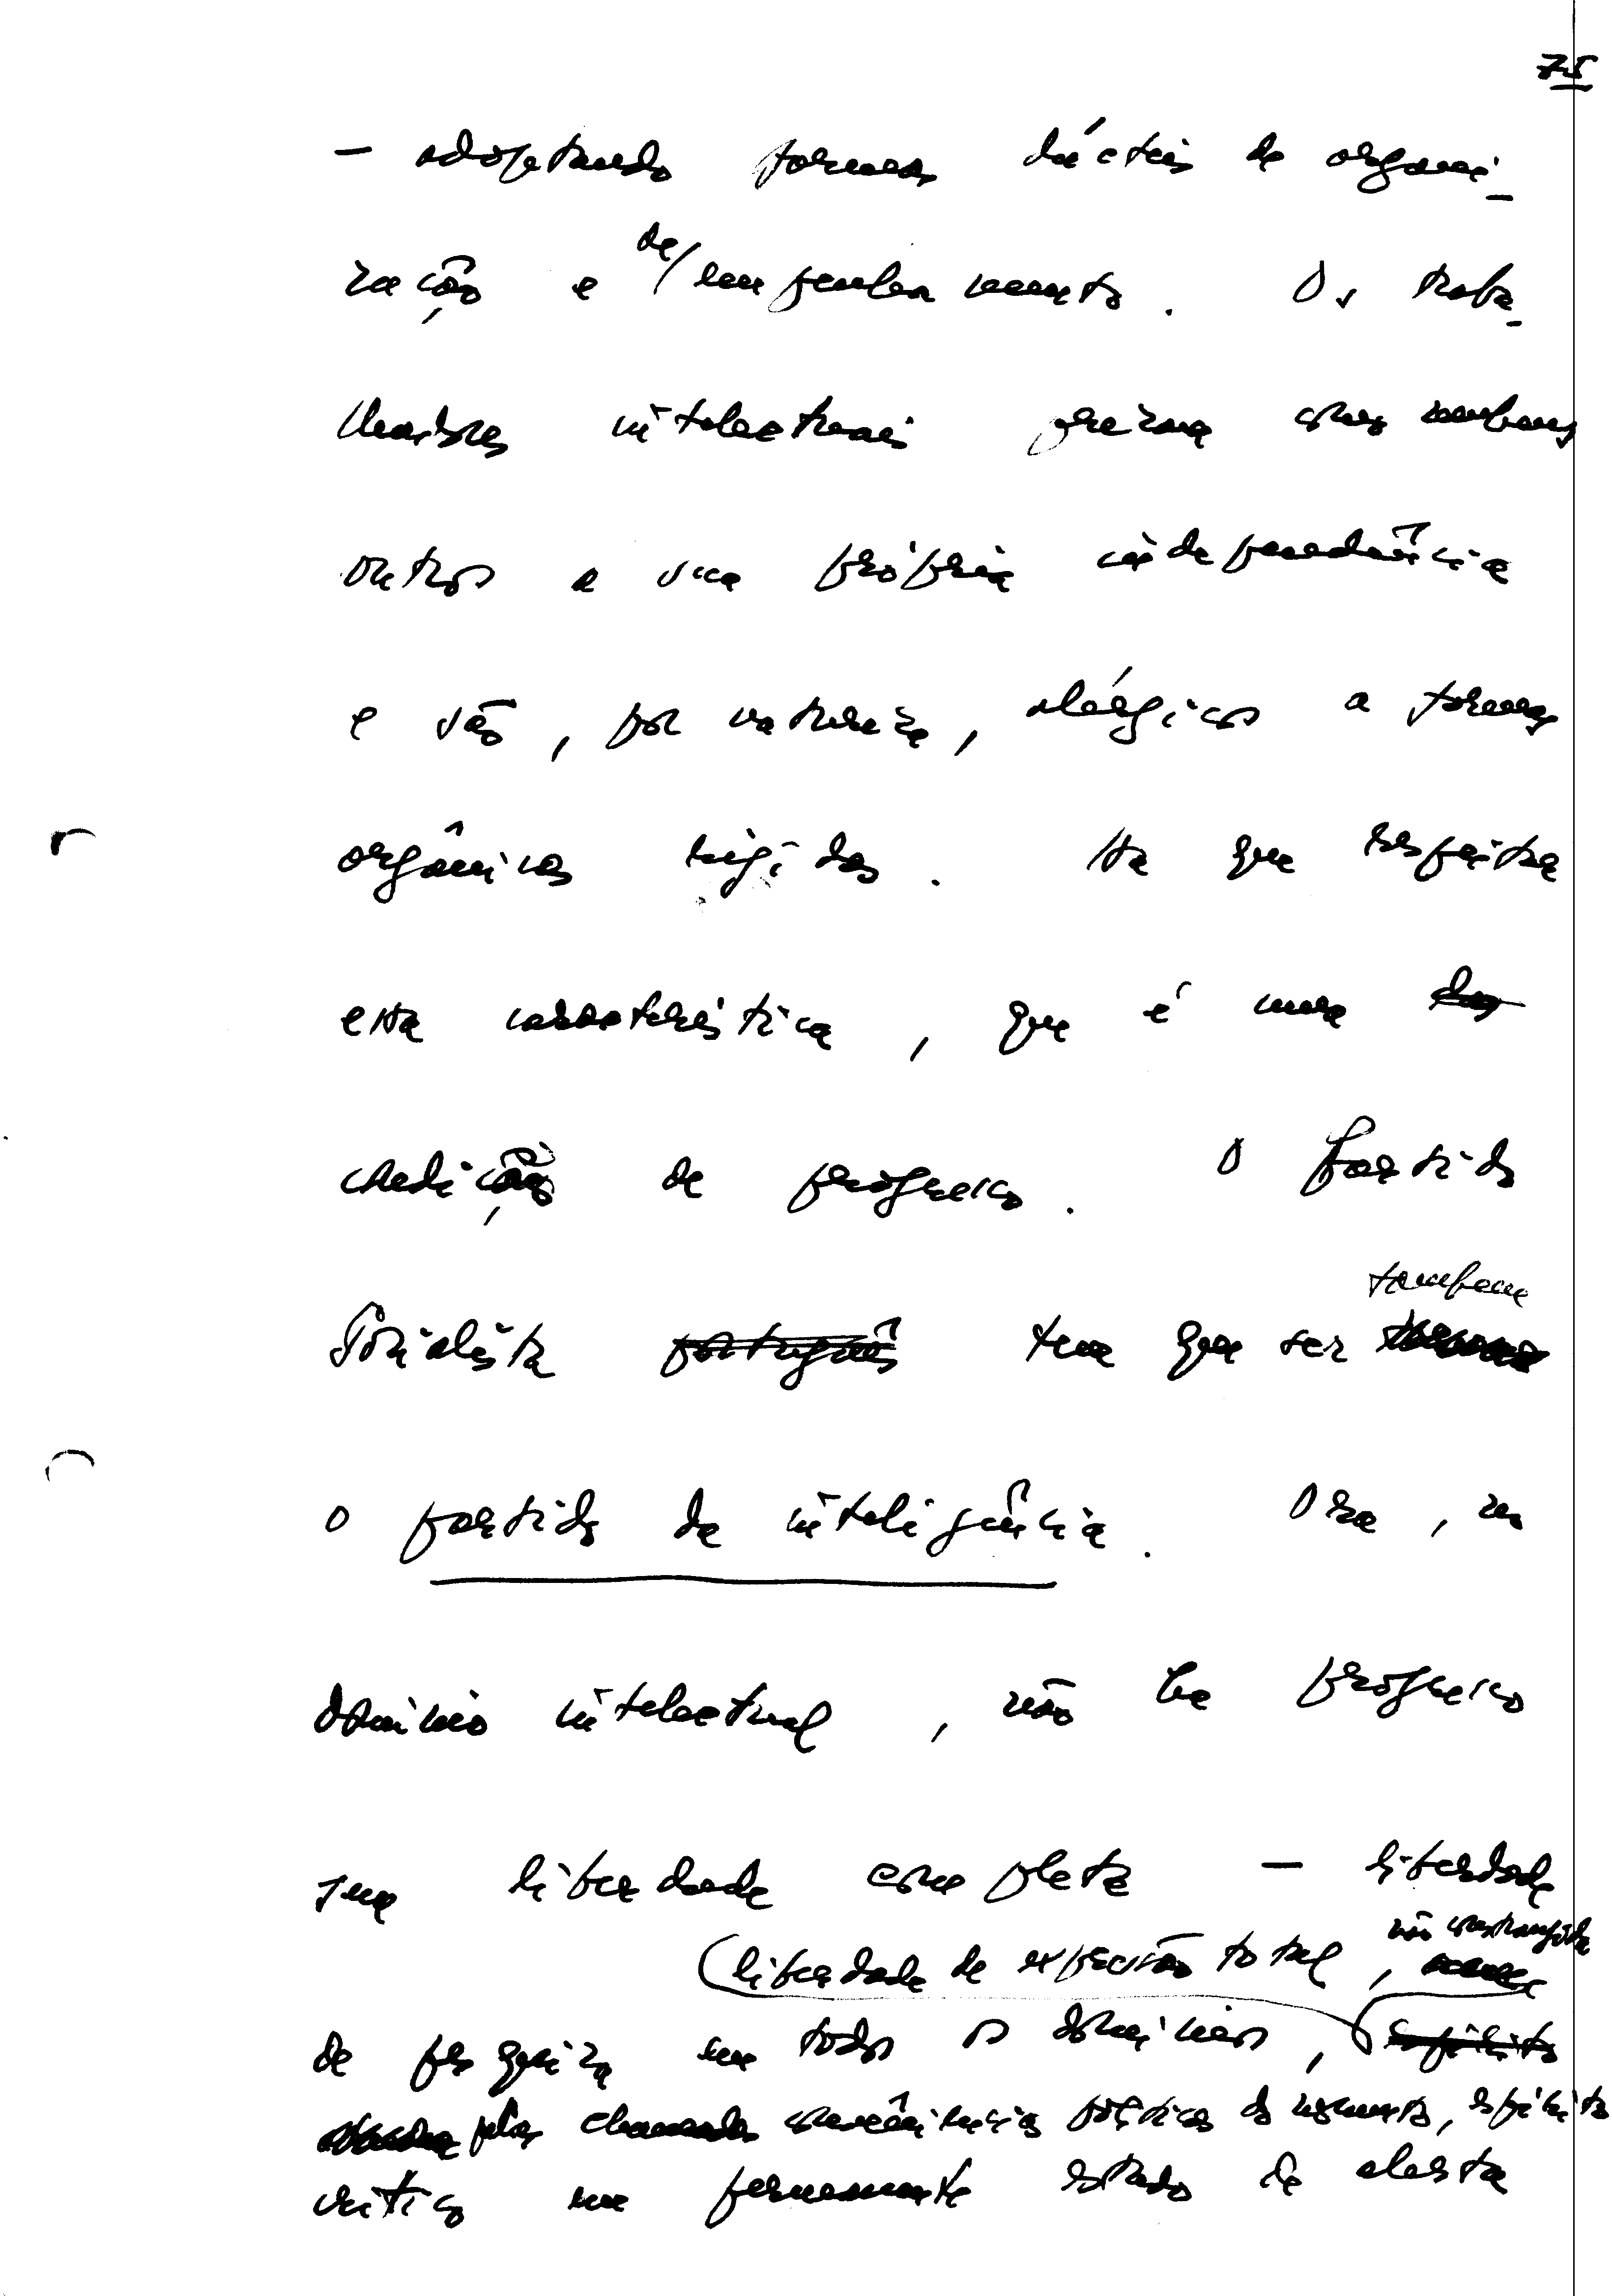 75
— adoptando formas dúcteis de organi-
zação e de empenhamento. Os traba-
lhadores intelectuais prezam como nenhuns
outros a sua própria independência
e são, por natureza, alérgicos a formas
orgânicas rígidas. Há que respeitar
esta característica, que é uma
condição de progresso. O Partido
também
Socialista português tem que ser
o partido da inteligência. Ora, no
domínio intelectual, não há progresso
sem liberdade completa — liberdade
não constrangida
(liberdade de expressão total,
de pesquisa em todos os domínios, espírito
pelas chamadas conveniências políticas do momento, espírito
crítico em permanente estado de alerta